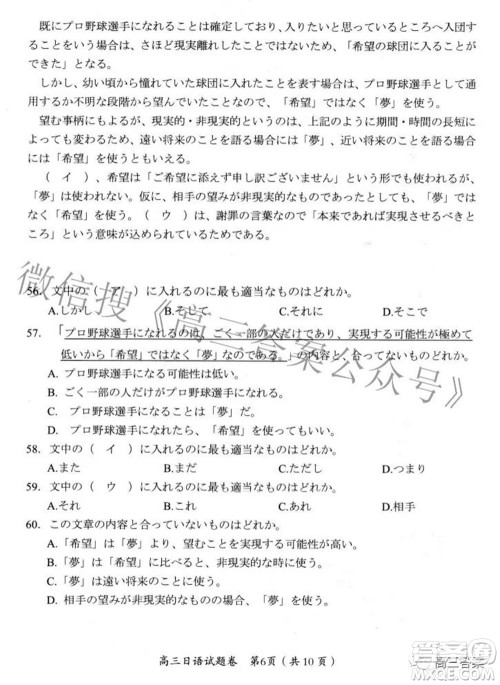 既にプロ野球選手になれることは確定しており、入りたいと思っているところへ入団す
るという場合は、さほど現実離れしたことではないため、「希望の球団に入ることが
できた」となる。
しかし、幼い頃から憧れていた球団に入れたことを表す場合は、プロ野球選手として通
用するか不明な段階から望んでいたことから、「希望」ではなく「夢」を使う。
望む事柄にもよるが、現実的・非現実的というのは、上記のように期間・時間の長短に
よっても変わるため、遠い将来のことを語る場合には「夢」、近い将来のことを語る場
合には「希望」が使われる。
（ イ ）、希望は「ご希望に添えず申し訳ございません」などというが、
「夢」は使われない。仮に、相手の望みが非現実的なものであったとしても、「夢」で
なく「希望」を使う。（ ウ ）は、謝罪の言葉なので「本来であれば実現させるべきと
ころ」という意味が込められているためである。
56. 文中の（ ア ）に入れるのに最も適当なものはどれか。
A.しかし B.そして C.それに D.そこで
57. 「プロ野球選手になれるのは、ごく一部の人だけであり、実現する可能性が極めて
低いから「希望」ではなく「夢」なのである。」の内容と、合っていないものはどれか。
A. プロ野球選手になれる可能性は低い。
B. ごく一部の人だけがプロ野球選手になれる。
C. プロ野球選手になることは「夢」だ。
D. プロ野球選手になることは「希望」と使ってもいい。
58. 文中の（ イ ）に入れるのに最も適当なものはどれか。
A.また B.まだ C.ただし D.つまり
59. 文中の（ ウ ）に入れるのに最も適当なものはどれか。
A.それ B.これ C.あれ D.相手
60. この文章の内容と合っていないものはどれか。
A.「希望」は「夢」より、望むことを実現する可能性が高い。
B.「夢」は「希望」に比べると、非現実的なことに使う。
C.「夢」は遠い将来のことに使う。
D.相手の望みが非現実的なものなら、「夢」を使う場合もある。
高三日语试题卷 第6页（共10页）
微信搜《高三答案公众号》
高三答案